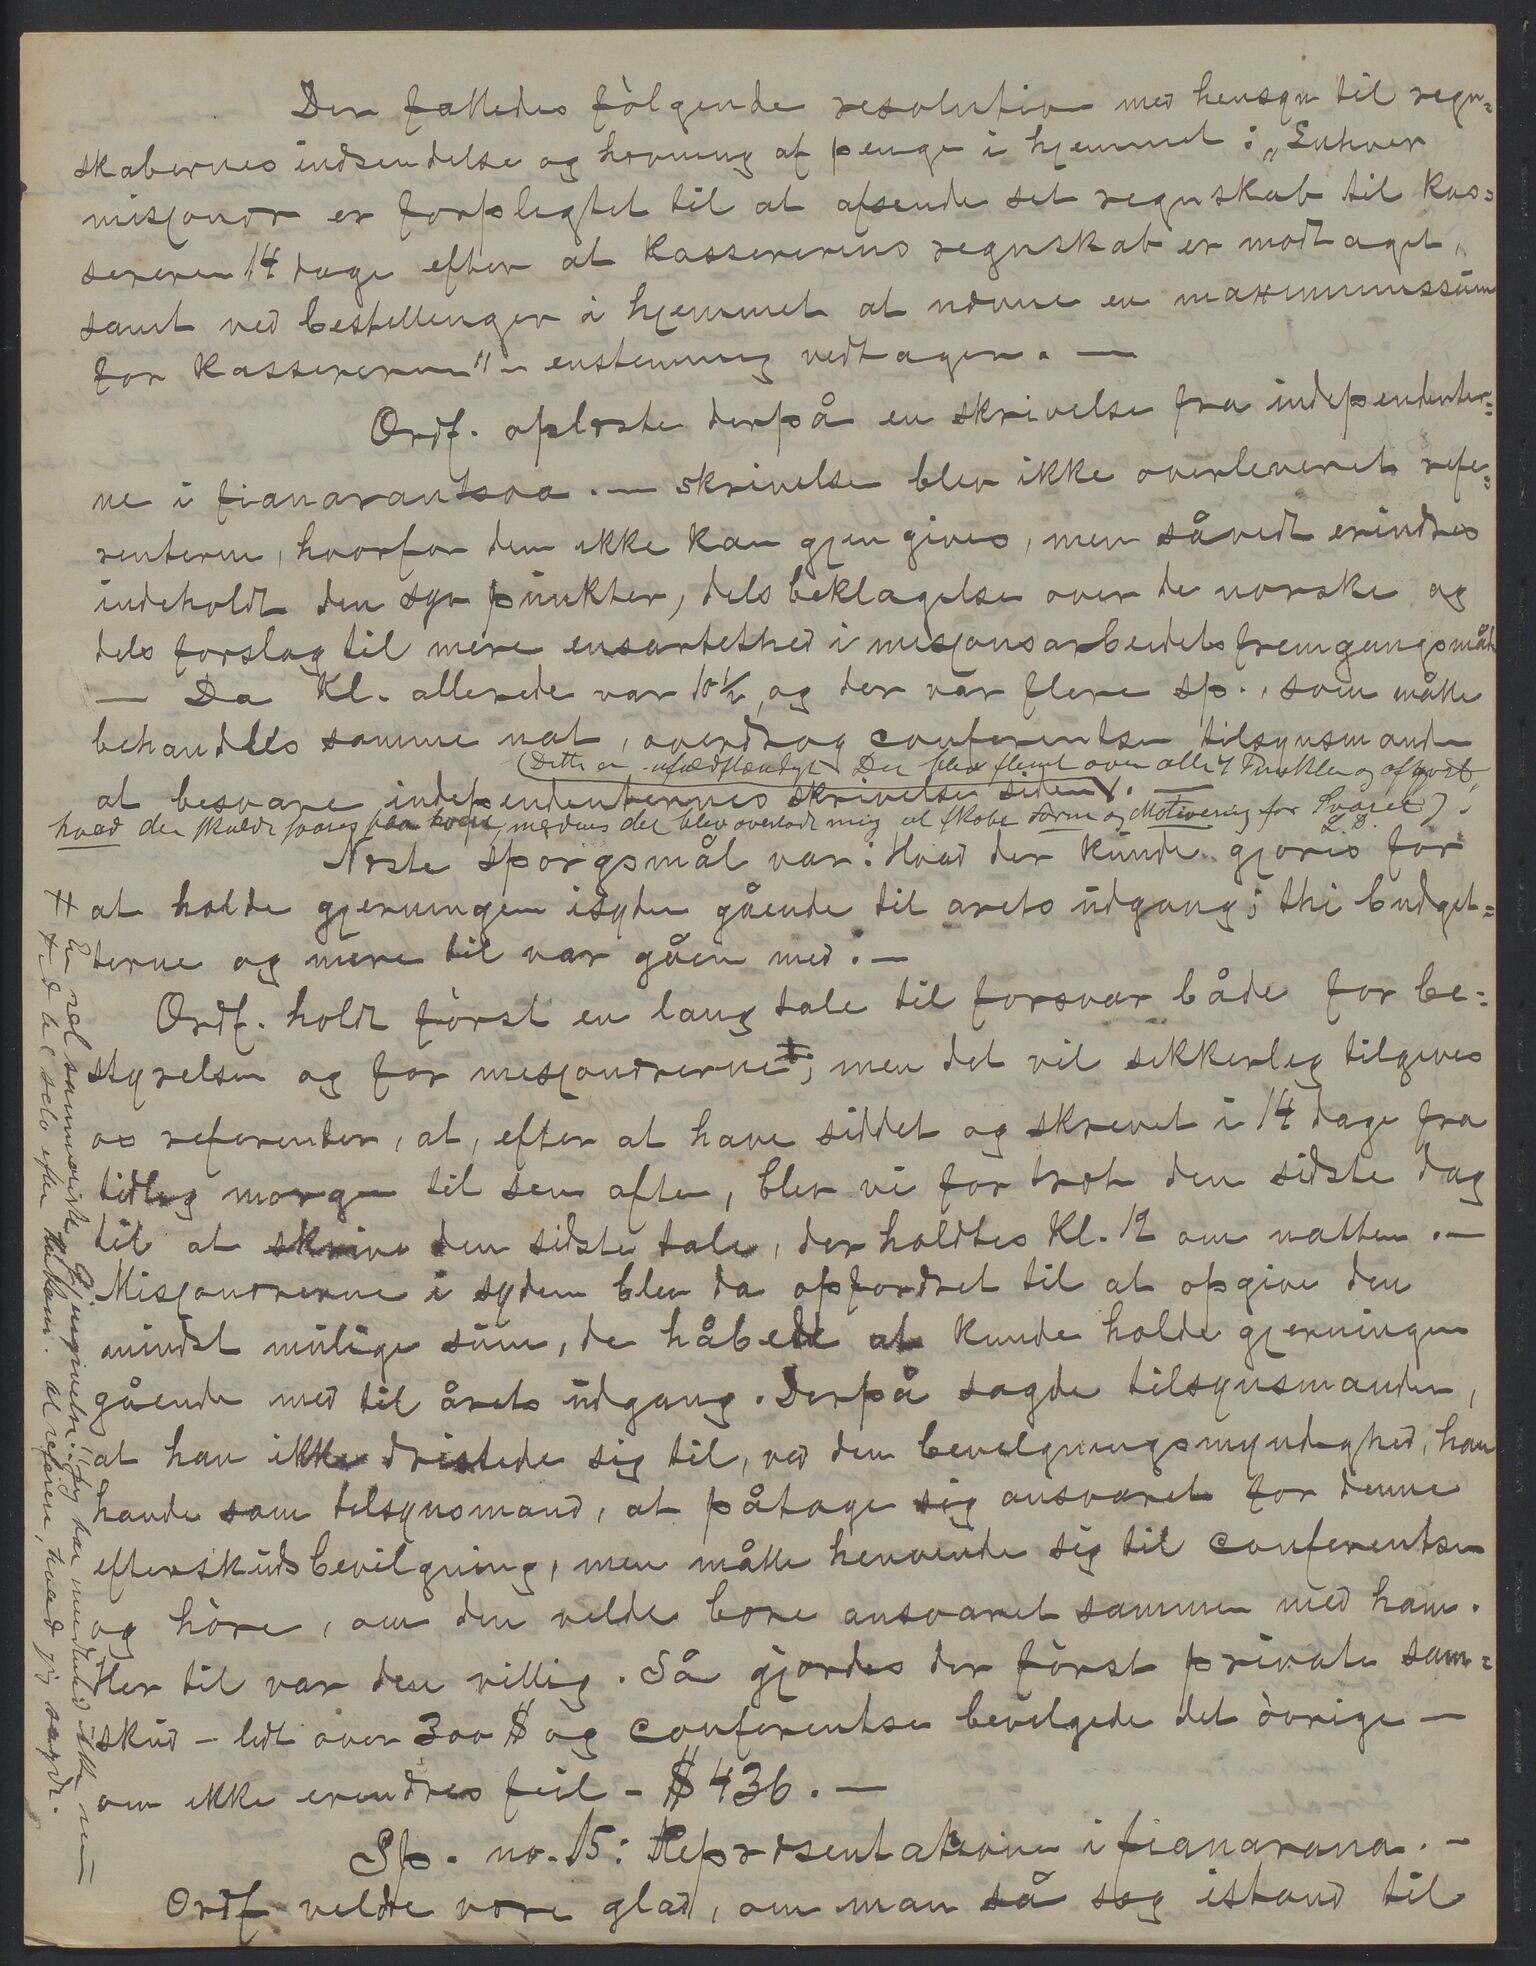 Der fattedes følgende resolution med hensyn til regn=
skabernes indsendelse og hævning af penge i hjemmet: „Enhver
misjonær er forpligtet til at afsende sit regnskab til kas=
sereren 14 dage efter at kassererens regnskab er modtaget,
samt ved bestillinger i hjemmet at nævne en maximumssum
for kassereren" – enstemmig vedtagen. —
Ordf. oplæste derpå en skrivelse fra independenter=
ne i Fianarantsoa. — skrivelse blev ikke overleveret refe=
renterne, hvorfor den ikke kan gjengives, men såvidt erindres
indeholdt den syv punkter, dels beklagelse over de norske og
dels forslag til mere ensartethed i misjonsarbeidets fremgangsmåde
— Da Kl. allerede var 10½, og der var flere sp., som måtte
behandles samme nat, overdrog conferentsen tilsynsmanden
(Dette er ufuldstændigt. Der blev stemt over alle 7 Punkter og afgjort,
at besvare independenternes skrivelse siden. —
hvad der skulde svares paa hvert, medens det blev overladt mig at skabe Form og Motivering for Svaret L. D.)
Næste spørgsmål var: Hvad der kunde gjøres for
at holde gjerningen i syden gående til årets udgang; thi budget=
terne og mere til var gåen med. —
Ordf. holdt først en lang tale til forsvar både for be=
styrelsen og for misjonærerne ‡; men det vil sikkerlig tilgives
os referenter, at, efter at have siddet og skrevet i 14 dage fra
tidlig morgen til sen aften, blev vi for træt den sidste dag
til at skrive den sidste tale, der holdtes Kl. 12 om natten. —
Misjonærerne i syden blev da opfordret til at opgive den
mindst mulige sum, de håbede at kunde holde gjerningen
gående med til årets udgang. Derpå sagde tilsynsmanden,
at han ikke dristede sig til, ved den bevilgningsmyndighed, han
havde som tilsynsmand, at påtage sig ansvaret for denne
efterskudsbevilgning, men måtte henvende sig til conferentsen
og høre, om den vilde bære ansvaret sammen med ham.
Her til var den villig. Så gjordes der først private sam=
skud – lidt over 300 $ og conferentsen bevilgede det øvrige —
om ikke erindres feil – $ 436. —
Sp. no. 15: Repræsentationen i Fianarana. —
Ordf. vilde være glad, om man så sag istand til
‡ En nok summarisk Gjengivelse! Jeg har imidlertid ikke nu
Tid selv efter at referere, hvad jeg sagde.